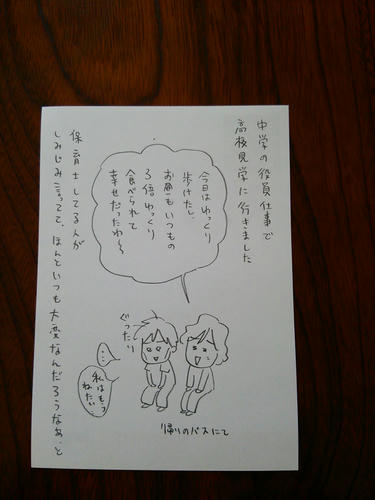 中学の役員仕事で
高校見学に行きました
今日はゆっくり
歩けたし、
お昼もいつもの
3倍ゆっくり
食べられて
幸せだったわ〜
保育士してる人が
しみじみ言ってて、ほんといつも大変なんだろうなぁ、と
ぐったり
・・・
私はもう
ねたい…
帰りのバスにて